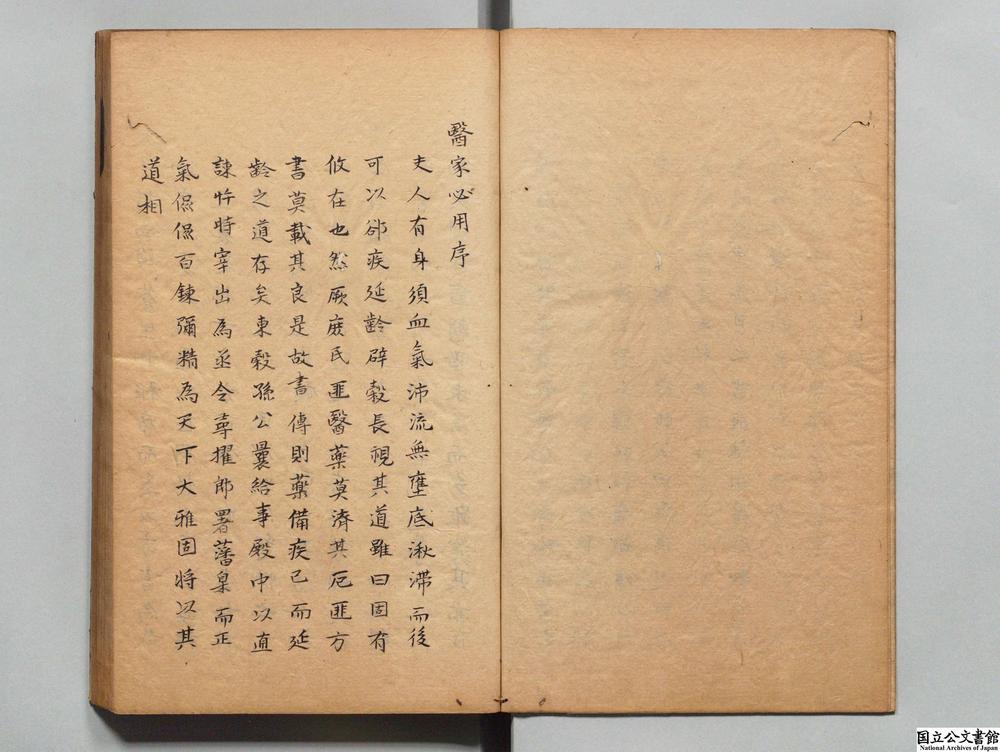 醫家必用序
夫人有身須血氣沛流無壅底湫滯而後
可以郤疾延齡辟穀長視其道雖曰固有
攸在也然厥庻民匪醫藥莫濟其厄匪方
書莫載其良是故書傳則藥備疾已而延
齡之道存矣東穀孫公曩給事殿中以直
諫忤時宰出為丞令尋擢郎署藩臬而正
氣傫傫百鍊彌精為天下大雅固將以其
道相
国立公文書館
National Archives of Japan